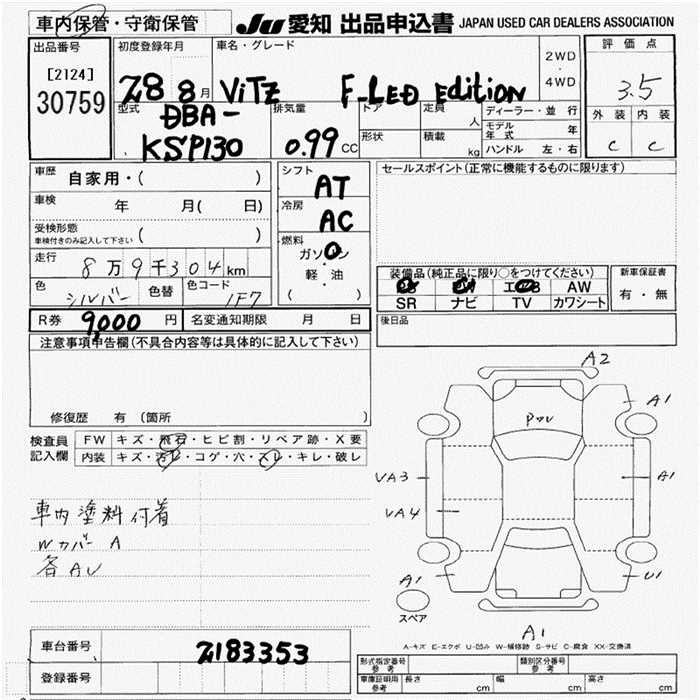 車内保管・守衛保管 JU 愛知 出品申込書 JAPAN USED CAR DEALERS ASSOCIATION
出品番号 初度登録年月 車名・グレード 2WD・4WD 評価点
[2124] 30759 28 8月 ViTZ F-LED Edition 3.5
型式 DBA-KSP130 排気量 0.99 CC ドア 定員 人 ディーラー・並行 外装 内装
形状 積載 kg モデル年式 年 C C
ハンドル 左・右
車歴 自家用・( ) シフト AT セールスポイント(正常に機能するものに限ります)
車検 年 月( 日) 冷房 AC
受検形態 車検付きのみ記入して下さい ( ) 燃料 ガソリン
走行 8万9千304km 軽・油 装備品(純正品に限り○をつけてください) 新車保証書
色 シルバー 色替 色コード 1F7 ( ) AW 有・無
SR ナビ TV カワシート
R券 9,000 円 名変通知期限 月 日 後日品
注意事項申告欄(不具合内容等は具体的に記入して下さい)
修復歴 有 (箇所 )
検査員記入欄 FW キズ・飛石・ヒビ割・リペア跡・X要
内装 キズ・汚レ・コゲ・穴・スレ・キレ・破レ
車内塗料付着
Wカバー A
各AU
A2
A1
PUU
VA3
A1
VA4
A1
U1
スペア
A1
A-キズ E-エクボ U-凹み W-補修跡 S-サビ C-腐食 XX-交換済
車台番号 2183353
登録番号
型式指定番号 参考 類別区分番号 参考
車庫証明用 参考 長さ cm 幅 cm 高さ cm